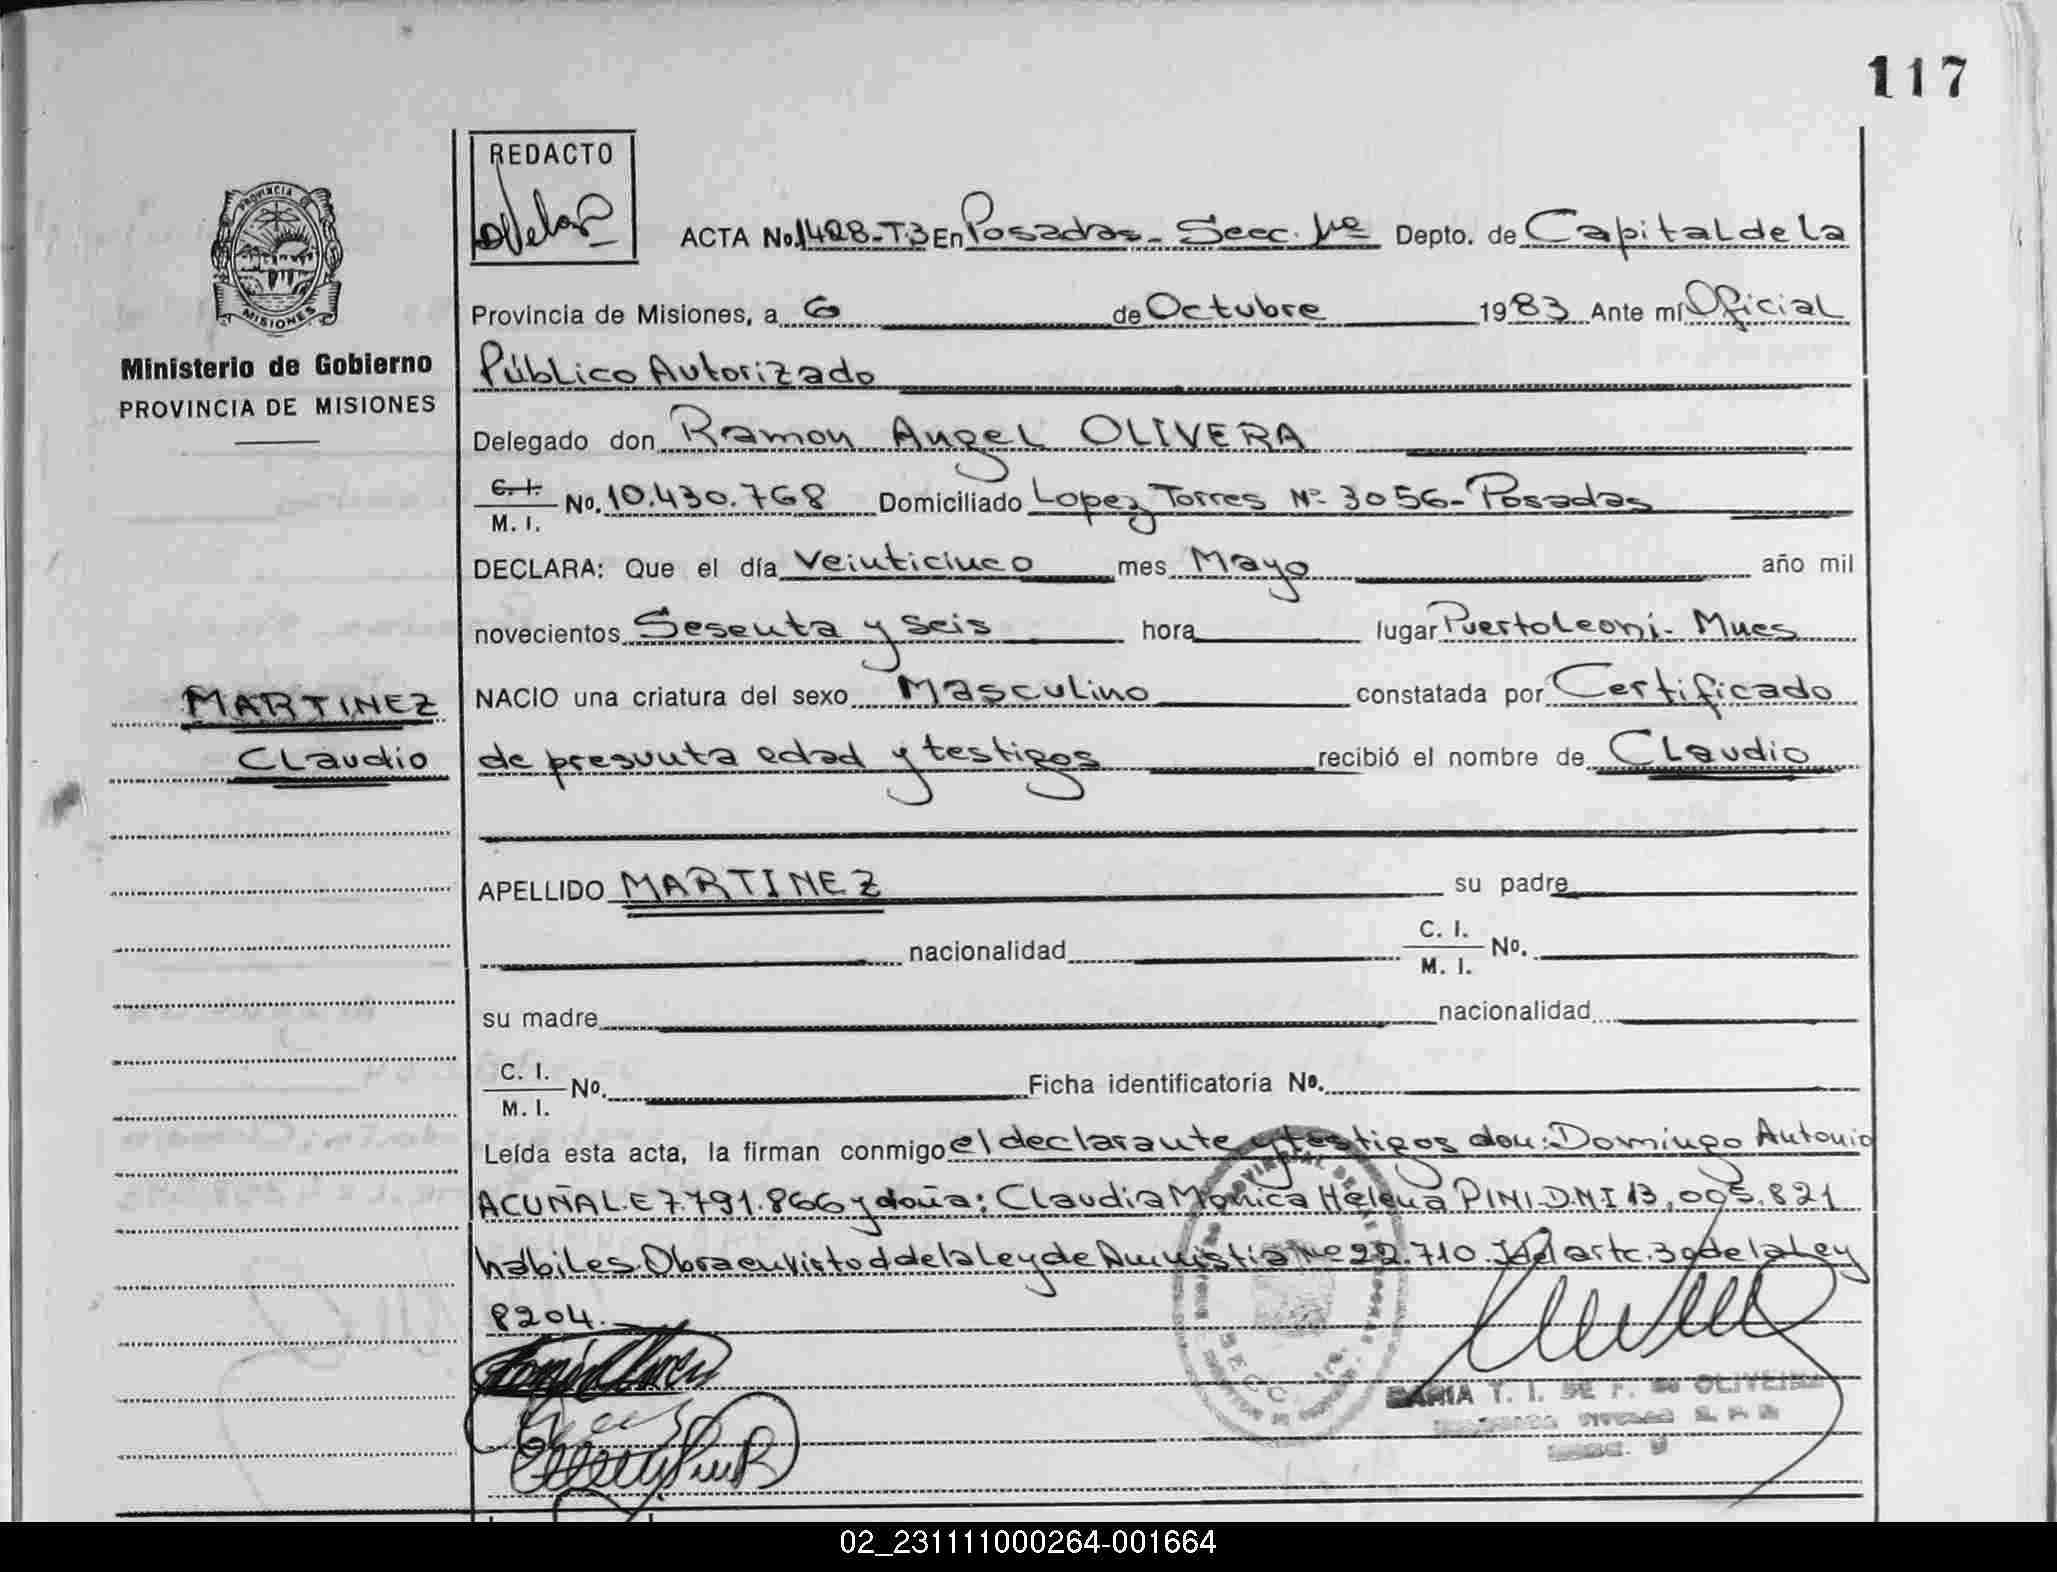 117
REDACTO
PROVINCIA
MISIONES
Ministerio de Gobierno
PROVINCIA DE MISIONES
ACTA No. 1428-T.3 En Posadas - Secc. 1ra Depto. de Capital de la
Provincia de Misiones, a 6 de Octubre 1983 Ante mí Oficial
Público Autorizado
Delegado don Ramon Angel OLIVERA
C. I. M. I. No. 10.430.768 Domiciliado Lopez Torres Nº 3056- Posadas
DECLARA: Que el día Veinticinco mes Mayo año mil
novecientos Sesenta y seis hora lugar Puerto Leoni- Mnes
MARTINEZ
NACIO una criatura del sexo Masculino constatada por Certificado
Claudio
de presunta edad y testigos recibió el nombre de Claudio
APELLIDO MARTINEZ su padre
nacionalidad C. I. M. I. No.
su madre nacionalidad
C. I. M. I. No. Ficha identificatoria No.
Leída esta acta, la firman conmigo el declarante y testigos don: Domingo Antonio
ACUÑA L.E 7.791.866 y doña: Claudia Monica Helena PINI D.N.I 13.005.821
hábiles. Obra en visto d de la Ley de Amnistia Nº 22.710 del artc. 39 de la Ley
8204.
SECC. 1ra.
MARIA T. I. DE F. DE OLIVEIRA
02_231111000264-001664